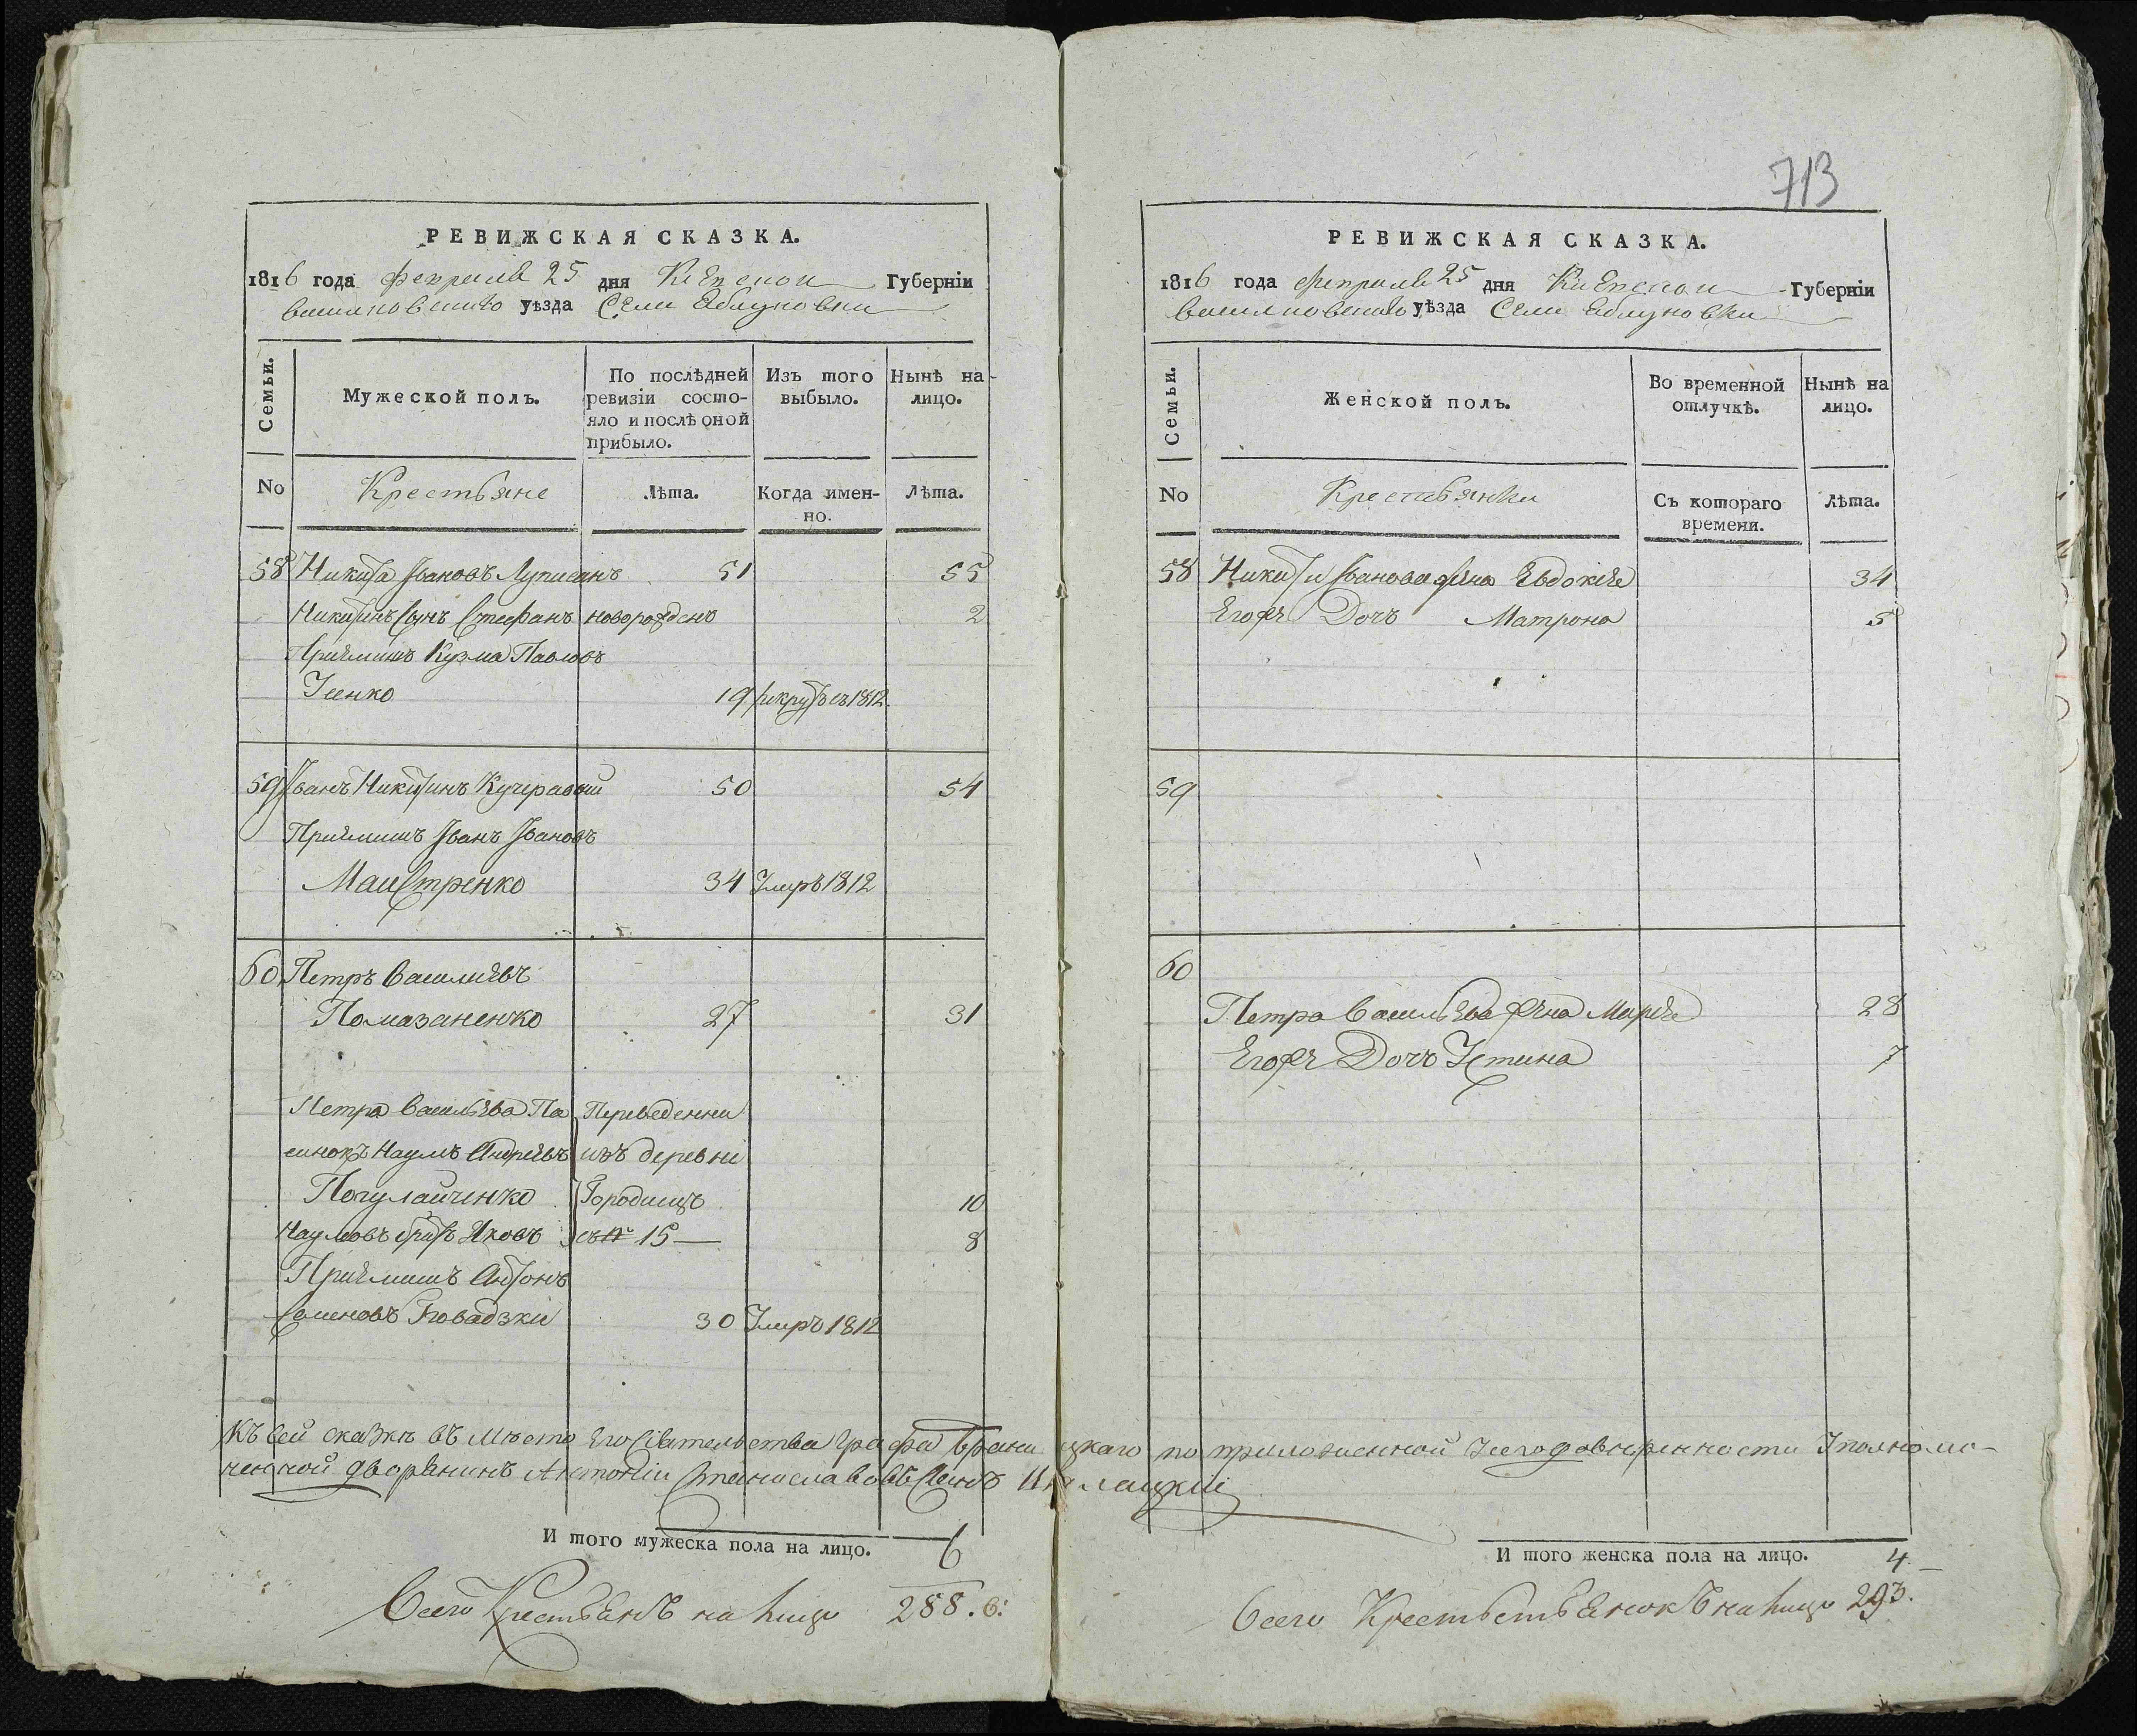 РЕВИЖСКАЯ СКАЗКА.
1816 года Февраля 25 дня Кіевской Губерніи
васильковского уѣзда Села Яблуновки
Семьи.
Мужеской полъ.
По послѣдней ревизіи состо-
яло и послѣ оной
прибыло.
Изъ того
выбыло.
Нынѣ на-
лицо.
No
Крестьяне
Лѣта.
Когда имен-
но.
Лѣта.
58 Никита Ивановъ 51 55
Никитинъ Сынъ Стефанъ новорожденъ 2
Приемышъ Кузма Павловъ
19 рекрутъ въ 1812.
59 Иванъ Никитинъ Кучеравый 50 54
Приемышъ Иванъ Ивановъ
Маистренко 34 Умеръ 1812
60 Петръ Василиевъ
Помазаненко 27 31
Петра Васильева Па Переведенни
синокъ Наумъ Андреевъ изъ деревни
Погулайченко Городищъ 10
Наумовъ братъ Яковъ съ № 15 — 8
Приемышъ Антонъ
Семеновъ 30 Умеръ 1812
Къ сей сказкѣ въ мѣсто Его Сіятельства Графа Браницкаго по приложенной доверенности Уполномо-
ченной дворянинъ Антоній Станиславовъ Сынъ
И того мужеска пола на лицо. 6
Всего Крестьянъ на лицо 288.
713
РЕВИЖСКАЯ СКАЗКА.
1816 года Февраля 25 дня Киевской Губерніи
васильковского уѣзда Села Яблуновки
Семьи.
Женской полъ.
Во временной
отлучкѣ.
Нынѣ на
лицо.
No
Крестьянки
Съ котораго
времени.
Лѣта.
58 Никиты Иванова жена Евдокия 34
Егоже Дочъ Матрона 5
59
60
Петра Васильева жена Мария 28
Егоже Дочъ Устина 7
И того женска пола на лицо. 4.
Всего на лицо 293.